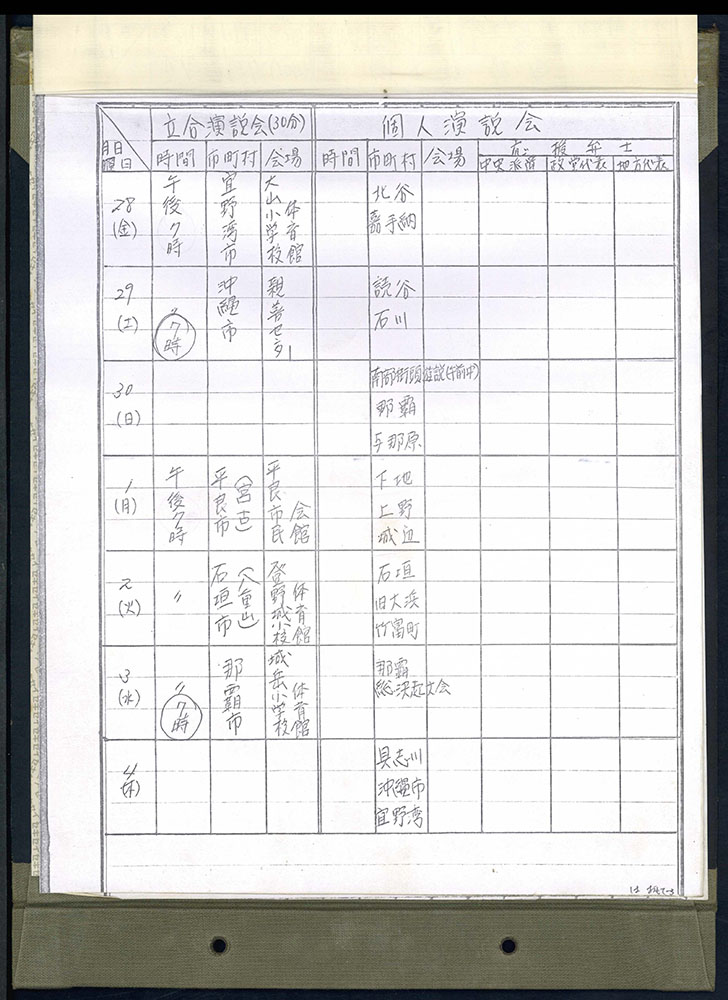 立合演説会(30分) 個人演説会
月日
曜日
時間 市町村 会場 時間 市町村 会場 応援弁士
中央派遣 政党代表 地方代表
28
(金)
午後7時 宜野湾市 大山小学校体育館
北谷
嘉手納
29
(土)
〃7時 沖縄市 親善センター
読谷
石川
30
(日)
南部街頭遊説(午前中)
那覇
与那原
1
(月)
午後7時 平良市(宮古) 平良市民会館
下地
上野
城辺
2
(火)
〃 石垣市(八重山) 登野城小校体育館
石垣
旧大浜
竹富町
3
(水)
〃7時 那覇市 城岳小学校体育館
那覇
総決起大会
4
(木)
具志川
沖縄市
宜野湾